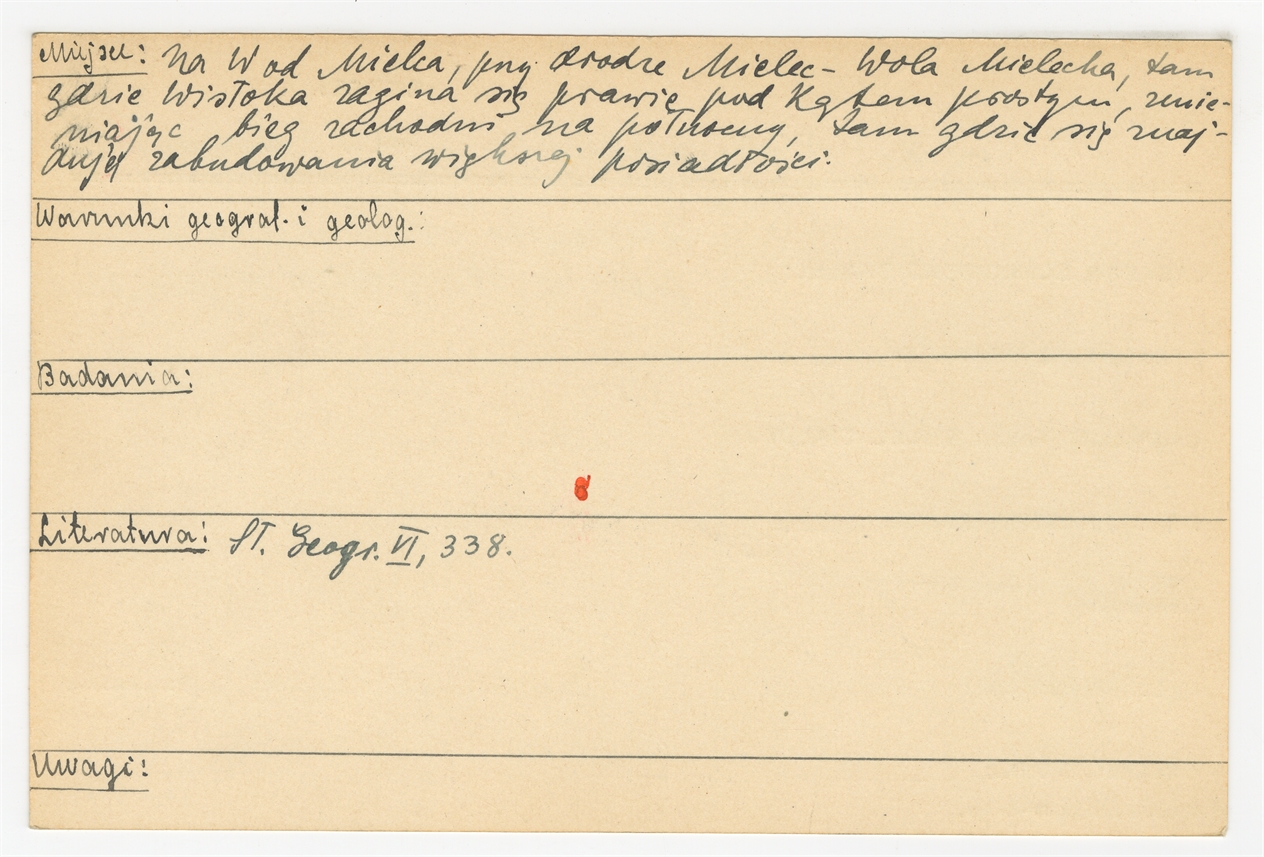 Miejsce: na W od Mielca, przy drodze Mielec - Wola Mielecka, tam
gdzie Wisłoka zagina się prawie pod kątem prostym, zmie-
niając bieg zachodni na północny, tam gdzie się znaj-
dują zabudowania większej posiadłości.
Warunki geograf. i geolog.:
Badania:
Literatura: Sł. Geogr. VI, 338.
Uwagi: